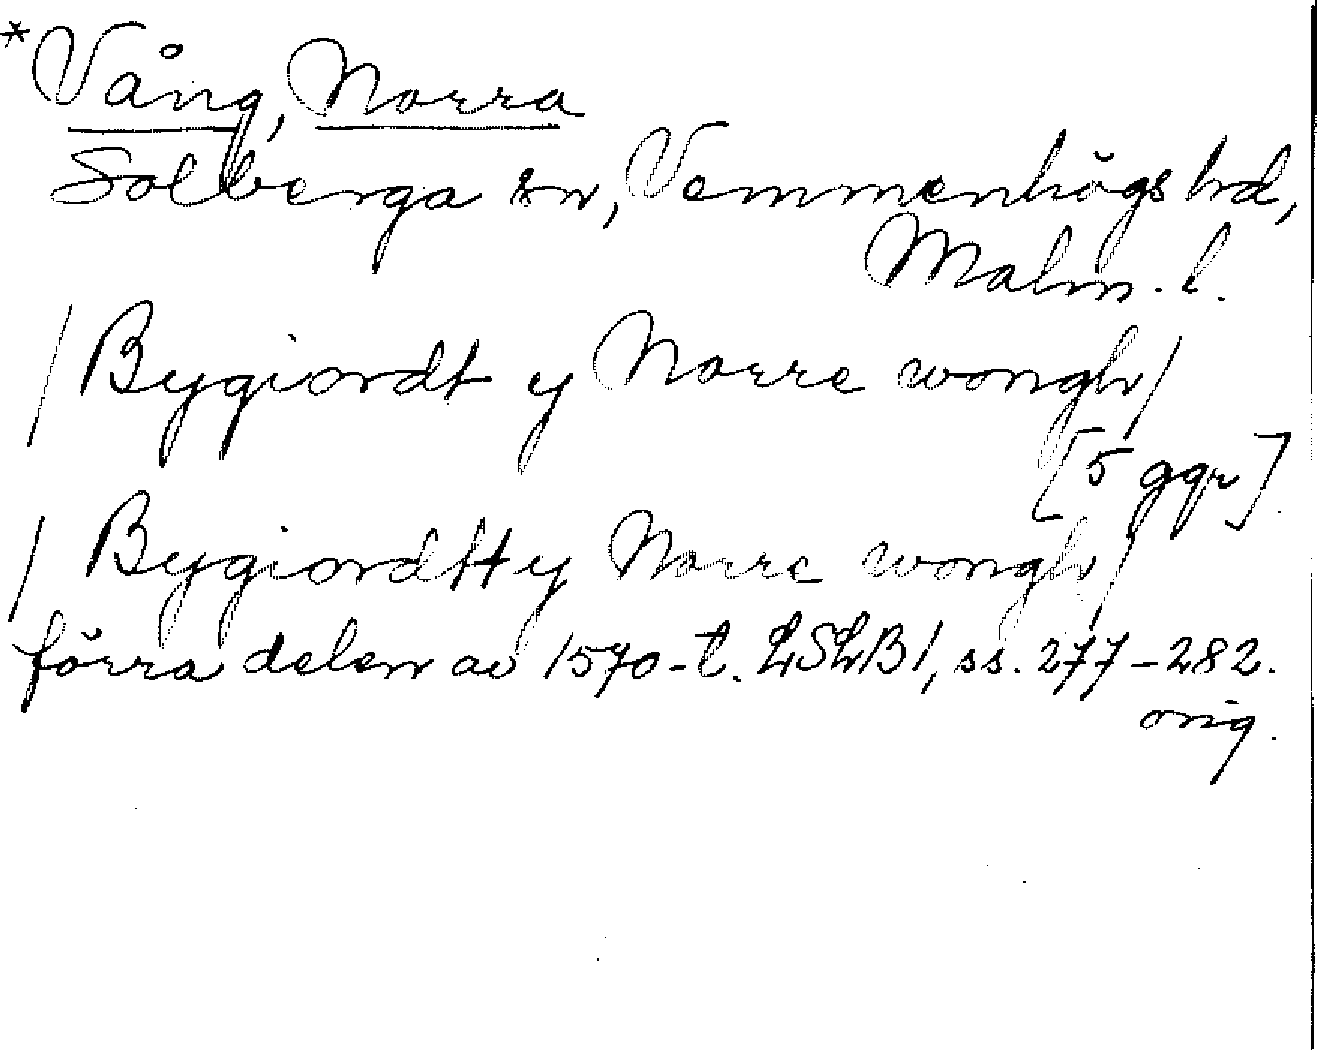 *Vång, Norra
Solberga sn, Vemmenhögs hd,
Malm. l.
/Bygiordt y Norre wongh/
[5 ggr].
/Bygiordtt y Norre wongh/
förra delen av 1570-t. LSLB1, ss. 277-282.
orig.